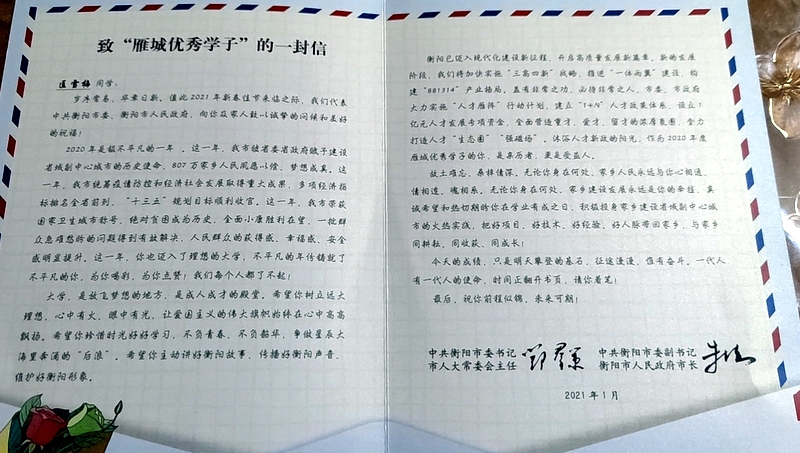 致“雁城优秀学子”的一封信
匡雪梅 同学:
岁序常易,华章日新。值此2021年新春佳节来临之际,我们代表
中共衡阳市委、衡阳市人民政府,向你及家人致以诚挚的问候和美好
的祝福!
2020年是极不平凡的一年。这一年,我市被省委省政府赋予建设
省域副中心城市的历史使命,807万家乡人民夙愿以偿、梦想成真。这
一年,我市统筹疫情防控和经济社会发展取得重大成果,多项经济指
标排名全省前列,“十三五”规划目标顺利收官。这一年,我市荣获
国家卫生城市称号,绝对贫困成为历史,全面小康胜利在望,一批群
众急难愁盼的问题得到有效解决,人民群众的获得感、幸福感、安全
感明显提升。这一年,你也迈入了理想的大学,不平凡的年传铸就了
不平凡的你,为你喝彩,为你点赞!我们每个人都了不起!
大学,是放飞梦想的地方,是成人成才的殿堂。希望你树立远大
理想,心中有火、眼中有光,让爱国主义的伟大旗帜始终在心中高高
飘扬。希望你珍惜时光好好学习,不负青春、不负韶华,争做星辰大
海里奔涌的“后浪”。希望你主动讲好衡阳故事,传播好衡阳声音,
维护好衡阳形象。
衡阳已迈入现代化建设新征程,开启高质量发展新篇章。新的发展
阶段,我们将加快实施“三高四新”战略,推进“一体两翼”建设,构
建“881314”产业格局。盖有非常之功,必待非常之人。市委、市政府
大力实施“人才雁阵”行动计划,建立“1+N”人才政策体系,设立1
亿元人才发展专项资金,全面营造重才、爱才、留才的浓厚氛围,全力
打造人才“生态圈”“强磁场”。沐浴人才新政的阳光,作为2020年度
雁城优秀学子的你,是亲历者,更是受益人。
故土难忘,桑梓情深。无论你身在何处,家乡人民永远与你心相通、
情相连、魂相系。无论你身在何处,家乡建设发展永远是你的牵挂。真
诚希望和热切期盼你在学业有成之日,积极投身家乡建设省域副中心城
市的火热实践,把好项目、好技术、好经验、好人脉带回家乡,与家乡
同耕耘、同收获、同成长!
今天的成绩,只是明天攀登的基石,征途漫漫,惟有奋斗。一代人
有一代人的使命,时间正翻开书页,请你着笔!
最后,祝你前程似锦,未来可期!
中共衡阳市委书记
市人大常委会主任 邓群策
中共衡阳市委副书记
衡阳市人民政府市长 朱健
2021年1月